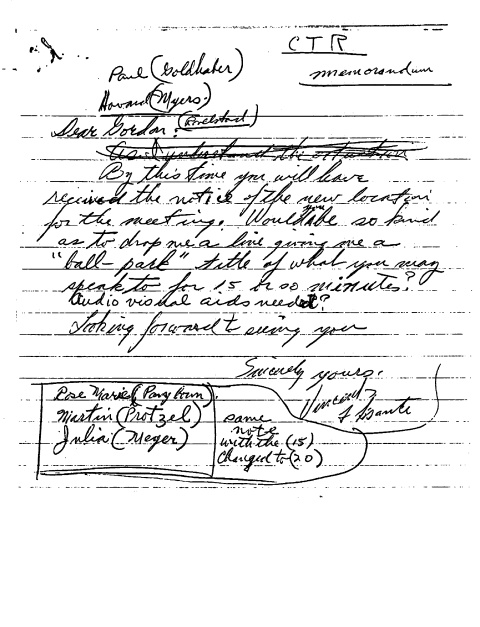 CTR
memorandum
Paul (Goldhaber)
Howard (Myers)
Dear Gordon:
By this time you will have
received the notice of the new location
for the meeting. Would you be so kind
as to drop me a line giving me a
"ball-park" title of what you may
speak to for 15 or so minutes?
Audio visual aids needed?
Looking forward to seeing you
Sincerely yours,
Vincent
Rose Marie (Pangborn)
Martin (Protzel)
Julia (Meyer)
same
note
with the (15)
changed to (20)